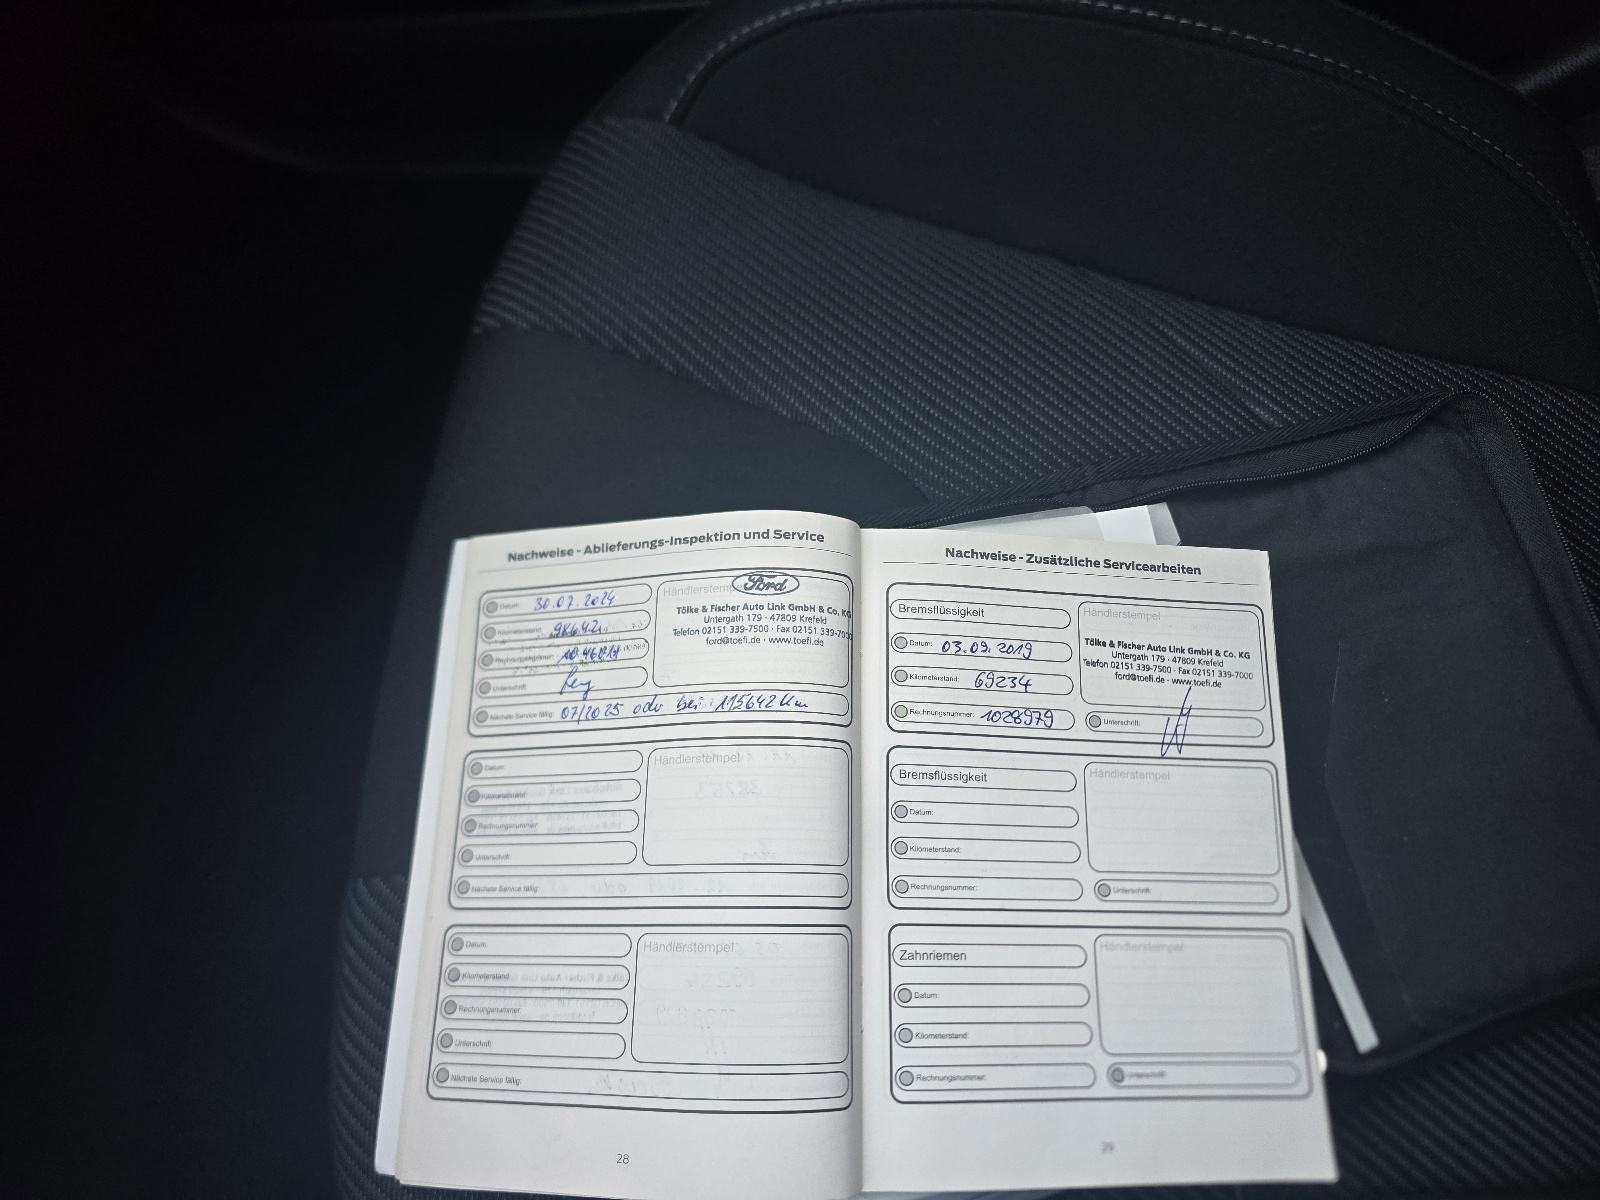 Nachweise - Ablieferungs-Inspektion und Service
Datum: 30.07.2024
Kilometerstand: 98642
Rechnungsnummer:
Unterschrift:
Nächste Service fällig: 07/2025 oder bei: 115642 km
Händlerstempel
Ford
Tölke & Fischer Auto Link GmbH & Co. KG
Untergath 179 · 47809 Krefeld
Telefon 02151 339-7500 · Fax 02151 339-7000
ford@toefi.de · www.toefi.de
Datum:
Kilometerstand:
Rechnungsnummer:
Unterschrift:
Nächste Service fällig:
Händlerstempel
Datum:
Kilometerstand:
Rechnungsnummer:
Unterschrift:
Nächste Service fällig:
Händlerstempel
28
Nachweise - Zusätzliche Servicearbeiten
Bremsflüssigkeit
Datum: 03.09.2019
Kilometerstand: 69234
Rechnungsnummer: 1028979
Händlerstempel
Tölke & Fischer Auto Link GmbH & Co. KG
Untergath 179 · 47809 Krefeld
Telefon 02151 339-7500 · Fax 02151 339-7000
ford@toefi.de · www.toefi.de
Unterschrift:
Bremsflüssigkeit
Datum:
Kilometerstand:
Rechnungsnummer:
Händlerstempel
Unterschrift:
Zahnriemen
Datum:
Kilometerstand:
Rechnungsnummer:
Händlerstempel
Unterschrift:
29